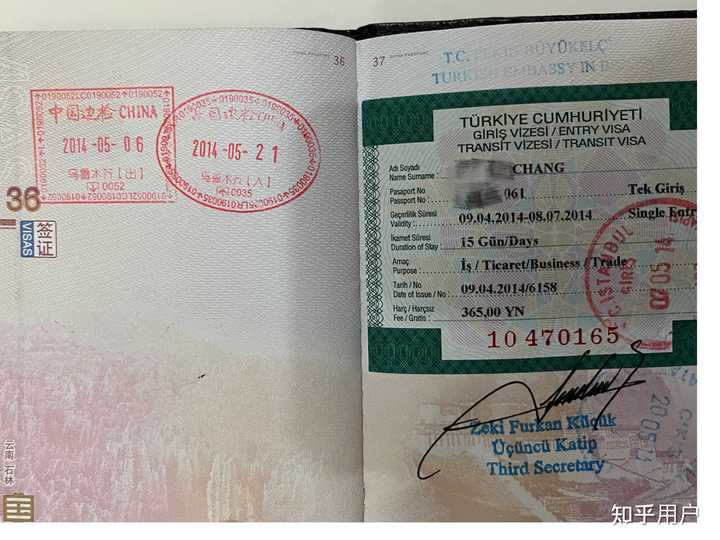 CHINA PASSPORT 36
中国边检 CHINA
2014 -05- 06
乌鲁木齐【出】
0052
中国边检 CHINA
2014 -05- 21
乌鲁木齐【入】
0035
36
VISAS
签证
云南 石林
37 CHINA PASSPORT
T.C. PEKİN BÜYÜKELÇ
TURKISH EMBASSY IN B
TÜRKİYE CUMHURİYETİ
GİRİŞ VİZESİ / ENTRY VISA
TRANSİT VİZESİ / TRANSIT VISA
Adı Soyadı
Name Surname : CHANG
Pasaport No
Passport No : 061 Tek Giriş
Geçerlilik Süresi
Validity : 09.04.2014-08.07.2014 Single Entr
İkamet Süresi
Duration of Stay : 15 Gün/Days
Amaç
Purpose : İş / Ticaret/Business / Trade
Tarih / No
Date of Issue / No : 09.04.2014/6158
Harç / Harçsız
Fee / Gratis : 365,00 YN
10 470165
T.C. İSTANBUL
GİRİŞ
07 05 14
Zeki Furkan Küçük
Üçüncü Katip
Third Secretary
20 05 14
知乎用户